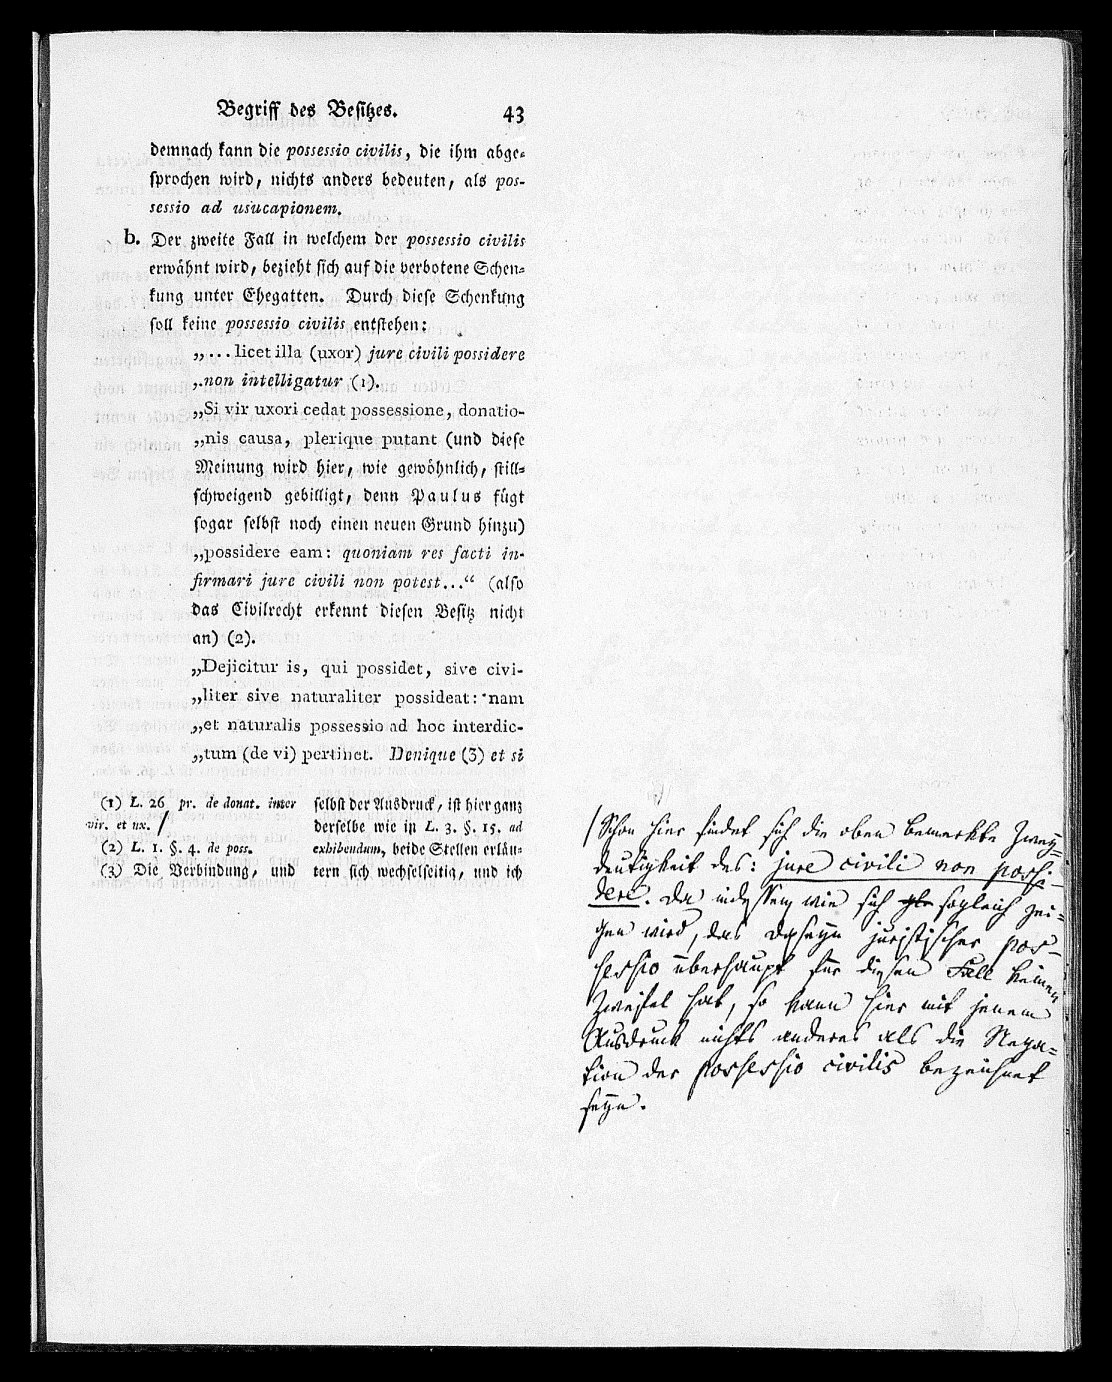 Begriff des Besitzes. 43
demnach kann die possessio civilis, die ihm abge-
sprochen wird, nichts anders bedeuten, als pos-
sessio ad usucapionem.
b. Der zweite Fall in welchem der possessio civilis
erwähnt wird, bezieht sich auf die verbotene Schen-
kung unter Ehegatten. Durch diese Schenkung
soll keine possessio civilis entstehen:
„...licet illa (uxor) jure civili possidere
„non intelligatur (1).
„Si vir uxori cedat possessione, donatio-
„nis causa, plerique putant (und diese
Meinung wird hier, wie gewöhnlich, still-
schweigend gebilligt, denn Paulus fügt
sogar selbst noch einen neuen Grund hinzu)
„possidere eam: quoniam res facti in-
firmari jure civili non potest...“ (also
das Civilrecht erkennt diesen Besitz nicht
an) (2).
„Dejicitur is, qui possidet, sive civi-
„liter sive naturaliter possideat: nam
„et naturalis possessio ad hoc interdic-
„tum (de vi) pertinet. Denique (3) et si
(1) L. 26 pr. de donat. inter
vir. et ux. /
(2) L. 1. §. 4. de poss.
(3) Die Verbindung, und
selbst der Ausdruck, ist hier ganz
derselbe wie in L. 3. §. 15. ad
exhibendum, beide Stellen erläu-
tern sich wechselseitig, und ich
/ Schon hier findet sich die oben bemerkte Zwey-
deutigkeit des: jure civili non possi-
dere. Da indessen, wie sich sogleich zei-
gen wird, das Daseyn juristischer pos-
sessio überhaupt für diesen Fall keinen
Zweifel hat, so kann hier mit jenem
Ausdruck nichts anderes als die Nega-
tion der possessio civilis bezeichnet
seyn.